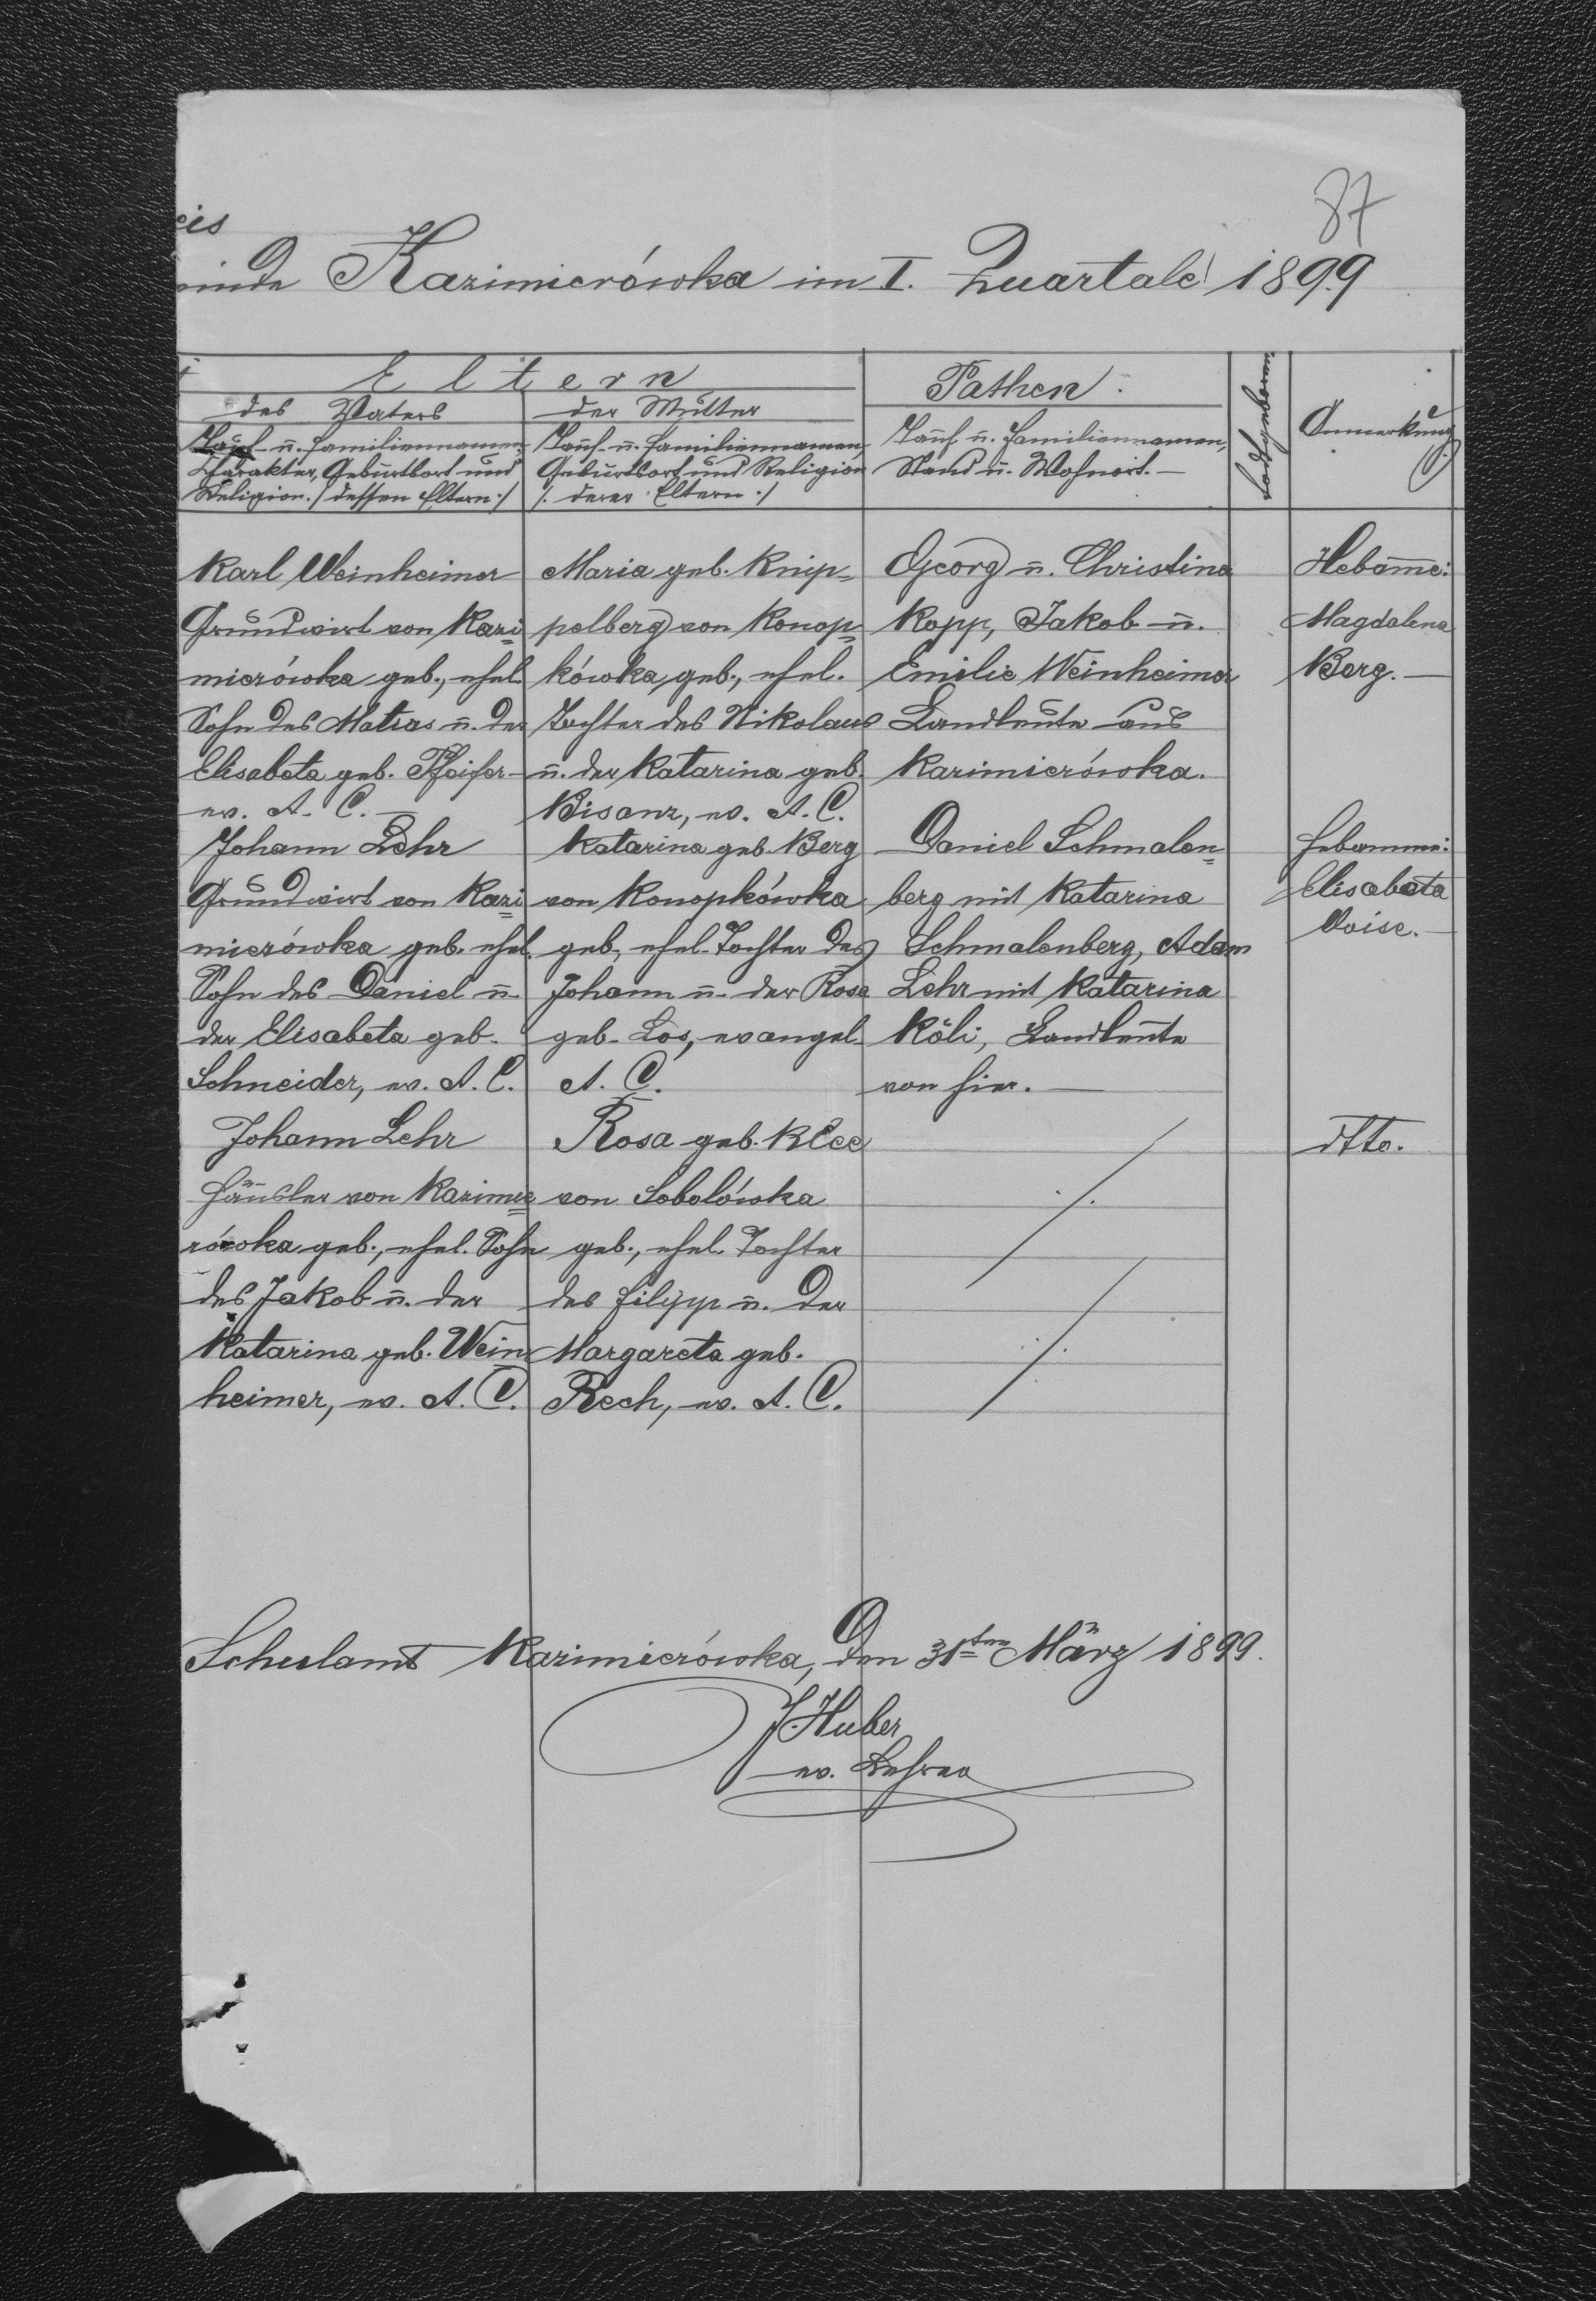 87
eis
einde Kazimierówka im I. Quartale 1899
Eltern
Pathen
todtgeboren
Anmerkung
des Vaters
der Mutter
Tauf- u. Familiennamen,
Charakter, Geburtsort und
Religion ./ dessen Eltern ./
Tauf- u. Familiennamen,
Geburtsort und Religion
/. deren Eltern ./
Tauf- u. Familiennamen,
Stand u. Wohnort. —
Karl Weinheimer
Grundwirt von Kazi=
mierówka geb., ehel.
Sohn des Matias u. der
Elisabeta geb. Pfeifer —
ev. A. C. —
Maria geb. Knip=
pelberg von Konop=
kówka geb., ehel.
Tochter des Nikolaus
u. der Katarina geb.
Bisanz, ev. A. C.
Georg u. Christina
Kopp, Jakob u.
Emilie Weinheimer
Landleute aus
Kazimierówka.
Hebamme:
Magdalena
Berg. —
Johann Lehr
Grundwirt von Kazi=
mierówka geb. ehel.
Sohn des Daniel u.
der Elisabeta geb.
Schneider, ev. A. C.
Katarina geb. Berg
von Konopkówka
geb., ehel. Tochter des
Johann u. der Rosa
geb. Los, evangel.
A. C.
Daniel Schmalen=
berg mit Katarina
Schmalenberg, Adam
Lehr mit Katarina
Köli, Landleute
von hier. —
Hebamme:
Elisabeta
Loise. —
Johann Lehr
Häusler von Kazimie=
rówka geb., ehel. Sohn
des Jakob u. der
Katarina geb. Wein=
heimer, ev. A. C.
Rosa geb. Klee
von Sobolówka
geb., ehel. Tochter
des Filipp u. der
Margareta geb.
Rech, ev. A. C.
dtto.
Schulamt Kazimierówka, den 31ten März 1899.
J. Huber
ev. Lehrer